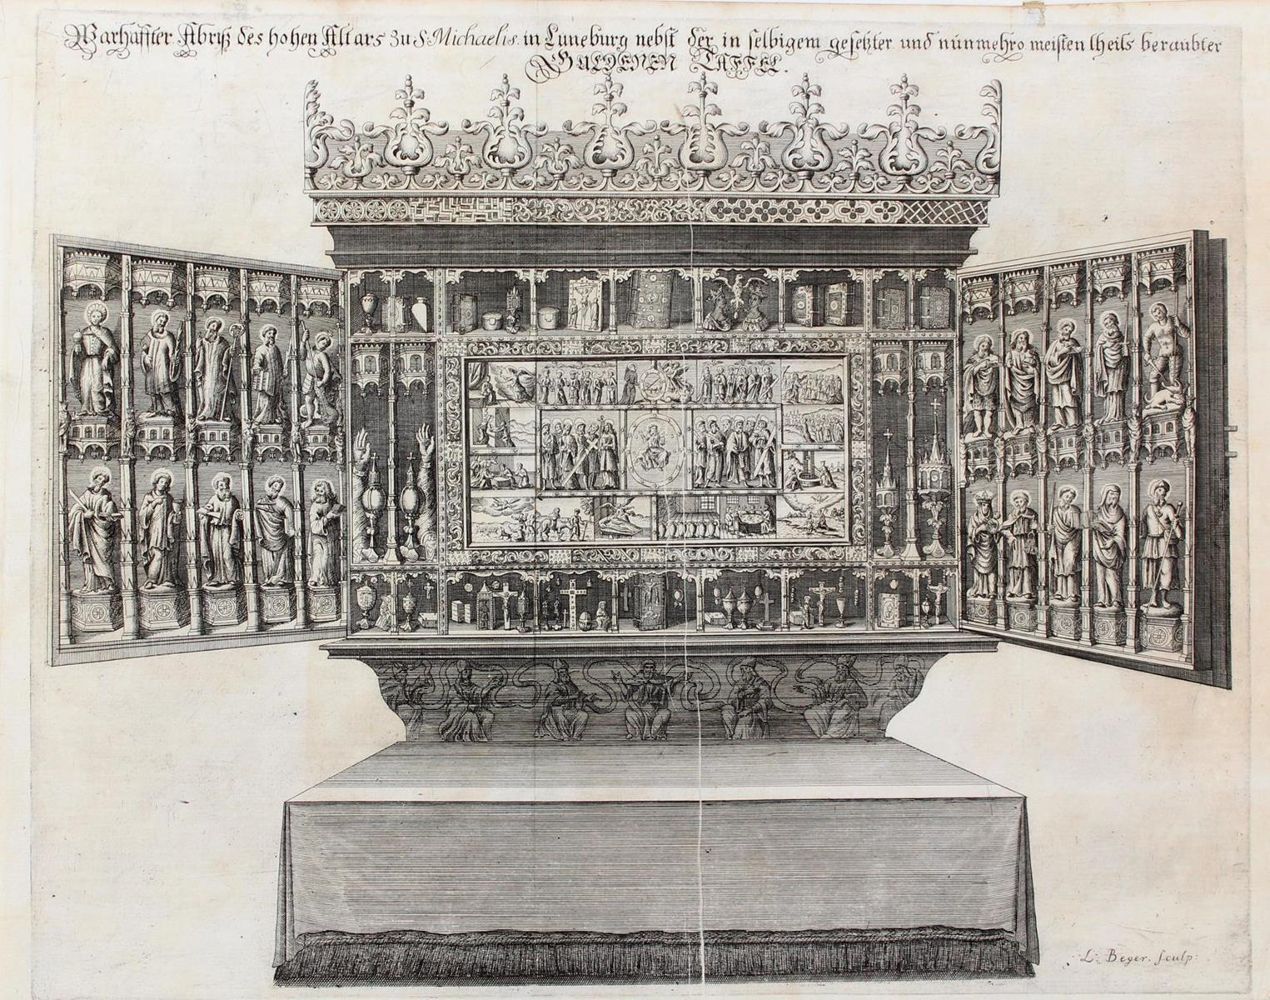 Warhaffter Abriß des hohen Altars zu S Michaelis in Luneburg nebst der in selbigem gesetzter und nunmehro meisten theils beraubter
GULDENEN TAFFEL.
L. Beger. sculp.